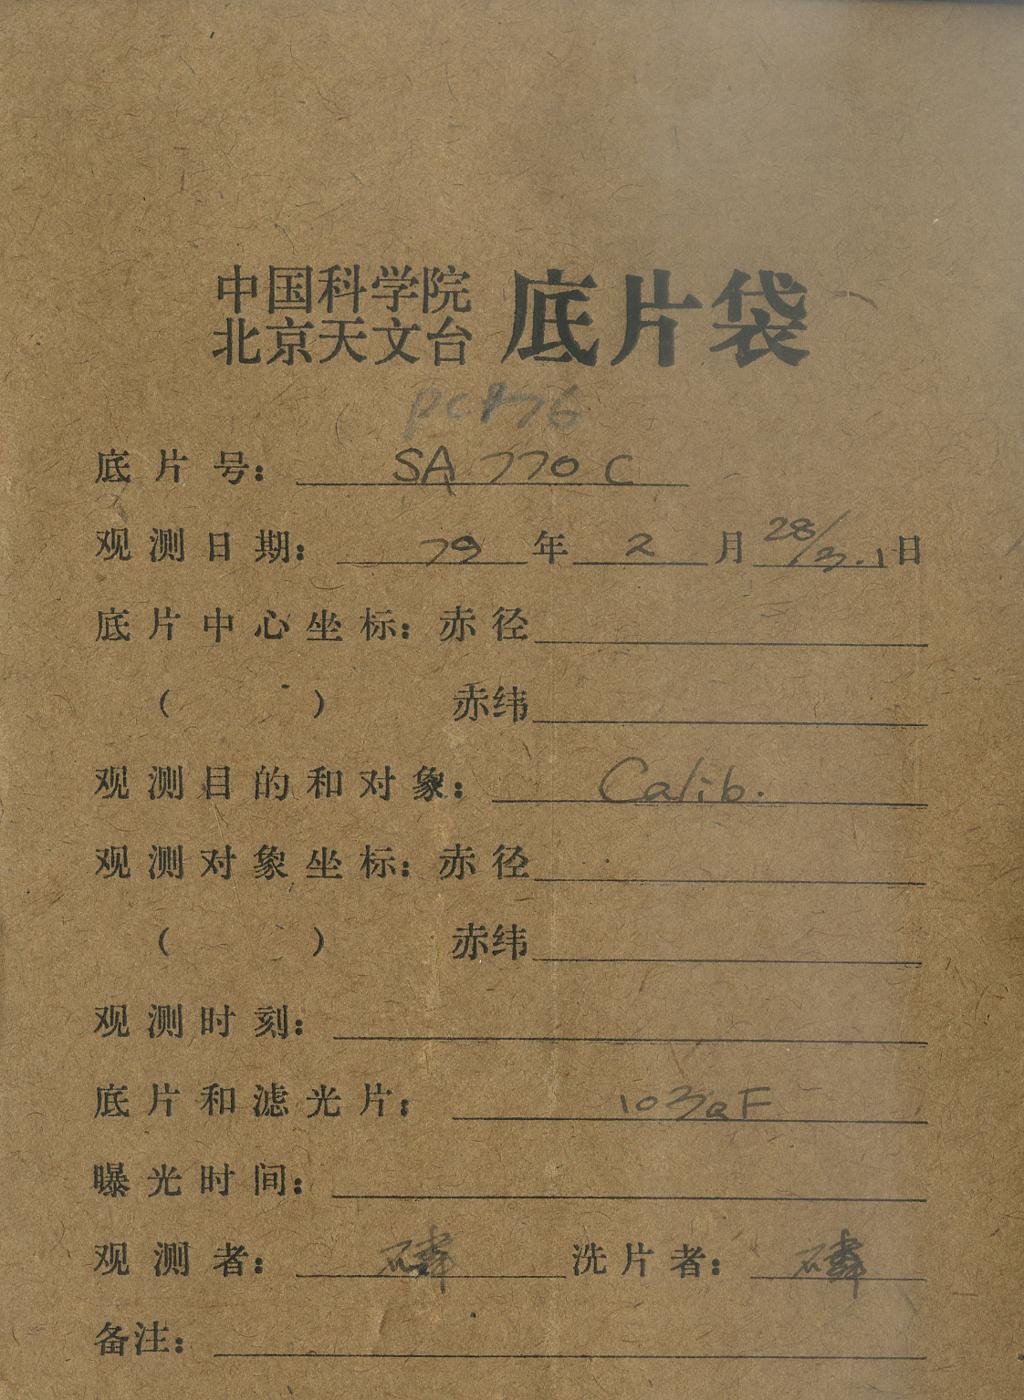 中国科学院
北京天文台 底片袋
底片号: SA 770 C
观测日期: 79 年 2 月 28/3.1 日
底片中心坐标: 赤径
( ) 赤纬
观测目的和对象: Calib.
观测对象坐标: 赤径
( ) 赤纬
观测时刻:
底片和滤光片: 103aF
曝光时间:
观测者: 洗片者:
备注: